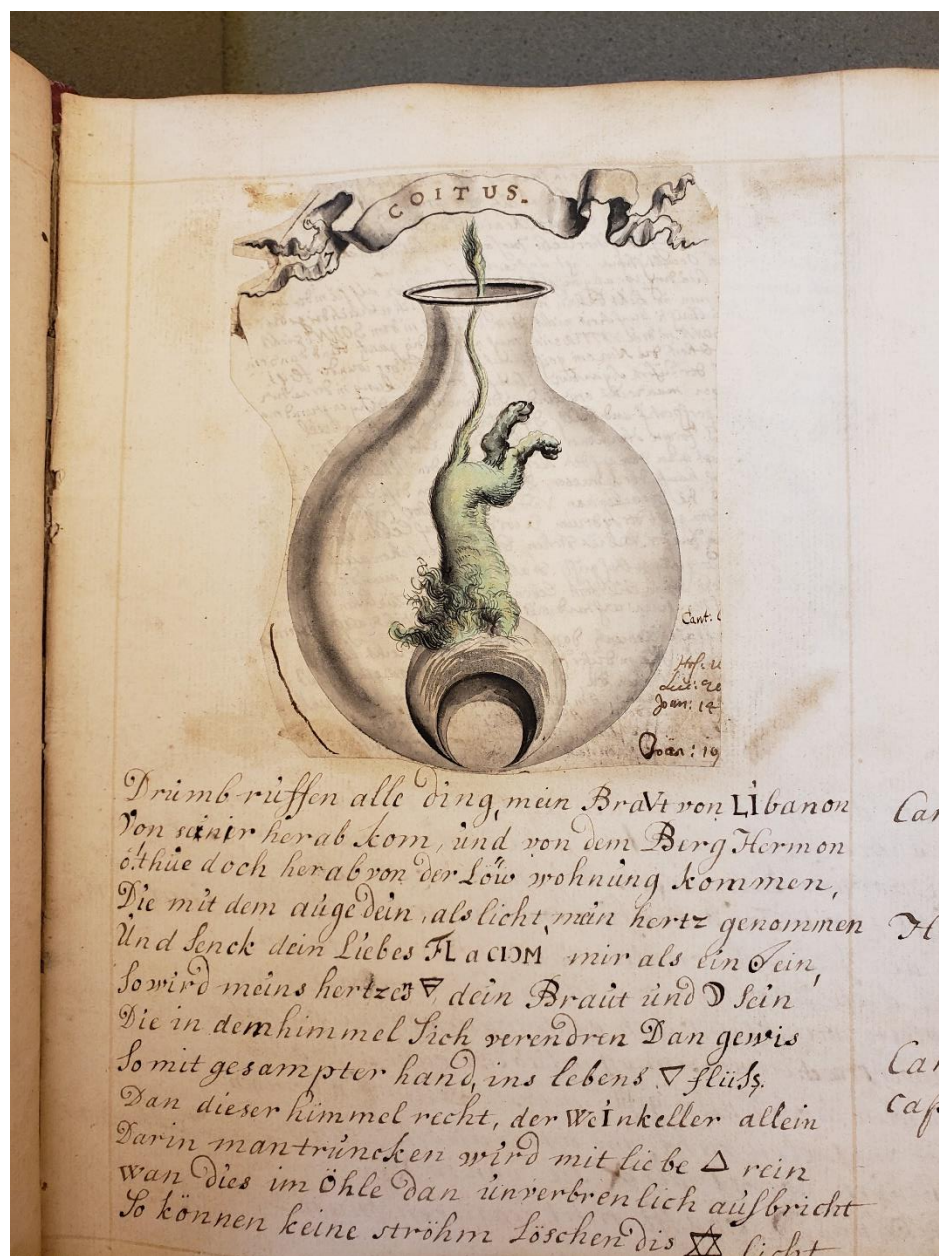 COITUS.
7
Cant:
Luc:
Joan: 14
Joan: 19
Drumb ruffen alle ding, mein BraVt von LIbanon
Von herab kom, und von dem Berg Hermon
ö thue doch herab von der Löw wohnung kommen,
Die mit dem auge dein, als licht, mein hertz genommen
Und senck dein Liebes mir als ein ein,
So wird meins hertzes 🜃 dein Braut und ☽ sein
Die in dem himmel sich verendren Dan gewis
So mit gesampter hand, ins lebens 🜄 flüss.
Dan dieser himmel recht, der WeInkeller allein
Darin man truncken wird mit liebe 🜂 rein
wan dies im Öhle dan unverbrenlich aufbricht
So können keine ströhm Löschen dis ✡ licht
Car
H
Car
cap